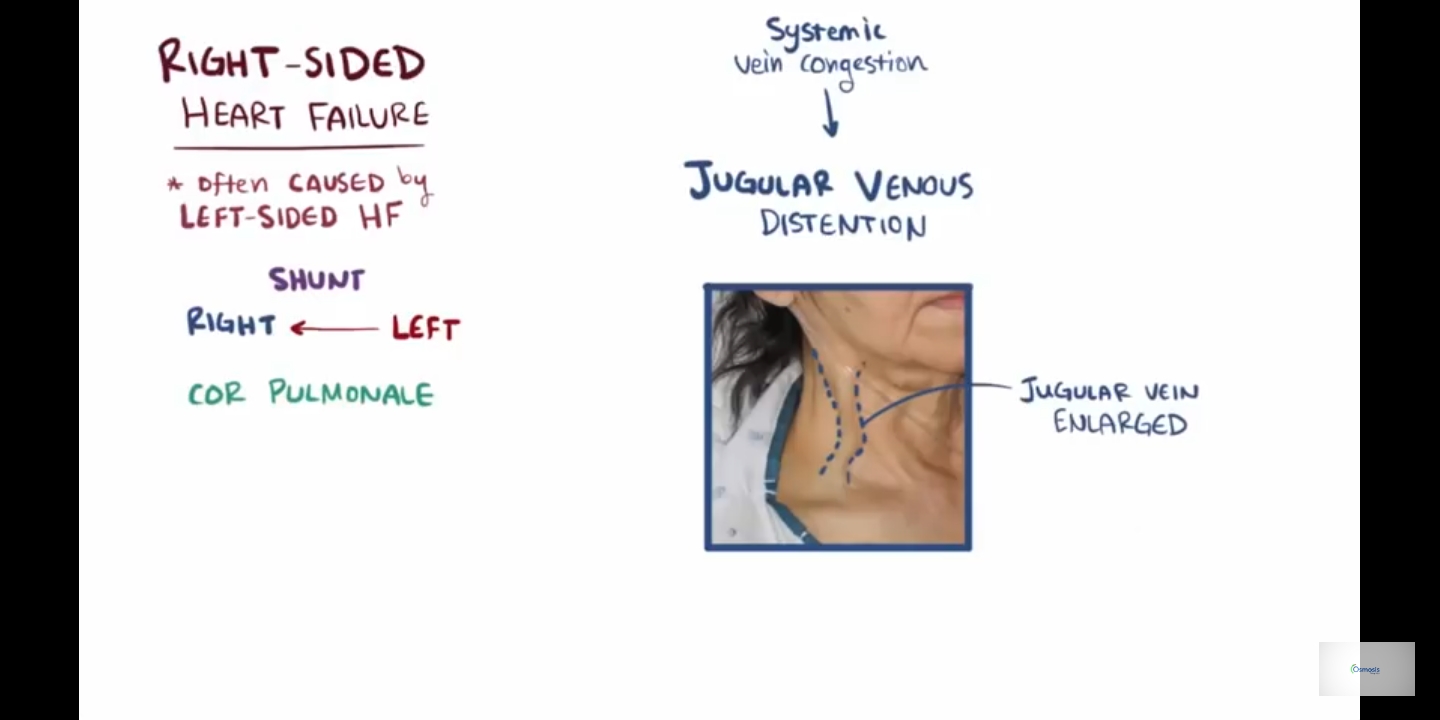 RIGHT-SIDED
HEART FAILURE
* often CAUSED by
LEFT-SIDED HF
SHUNT
RIGHT ← LEFT
COR PULMONALE
Systemic
vein congestion
↓
JUGULAR VENOUS
DISTENTION
JUGULAR VEIN
ENLARGED
Osmosis